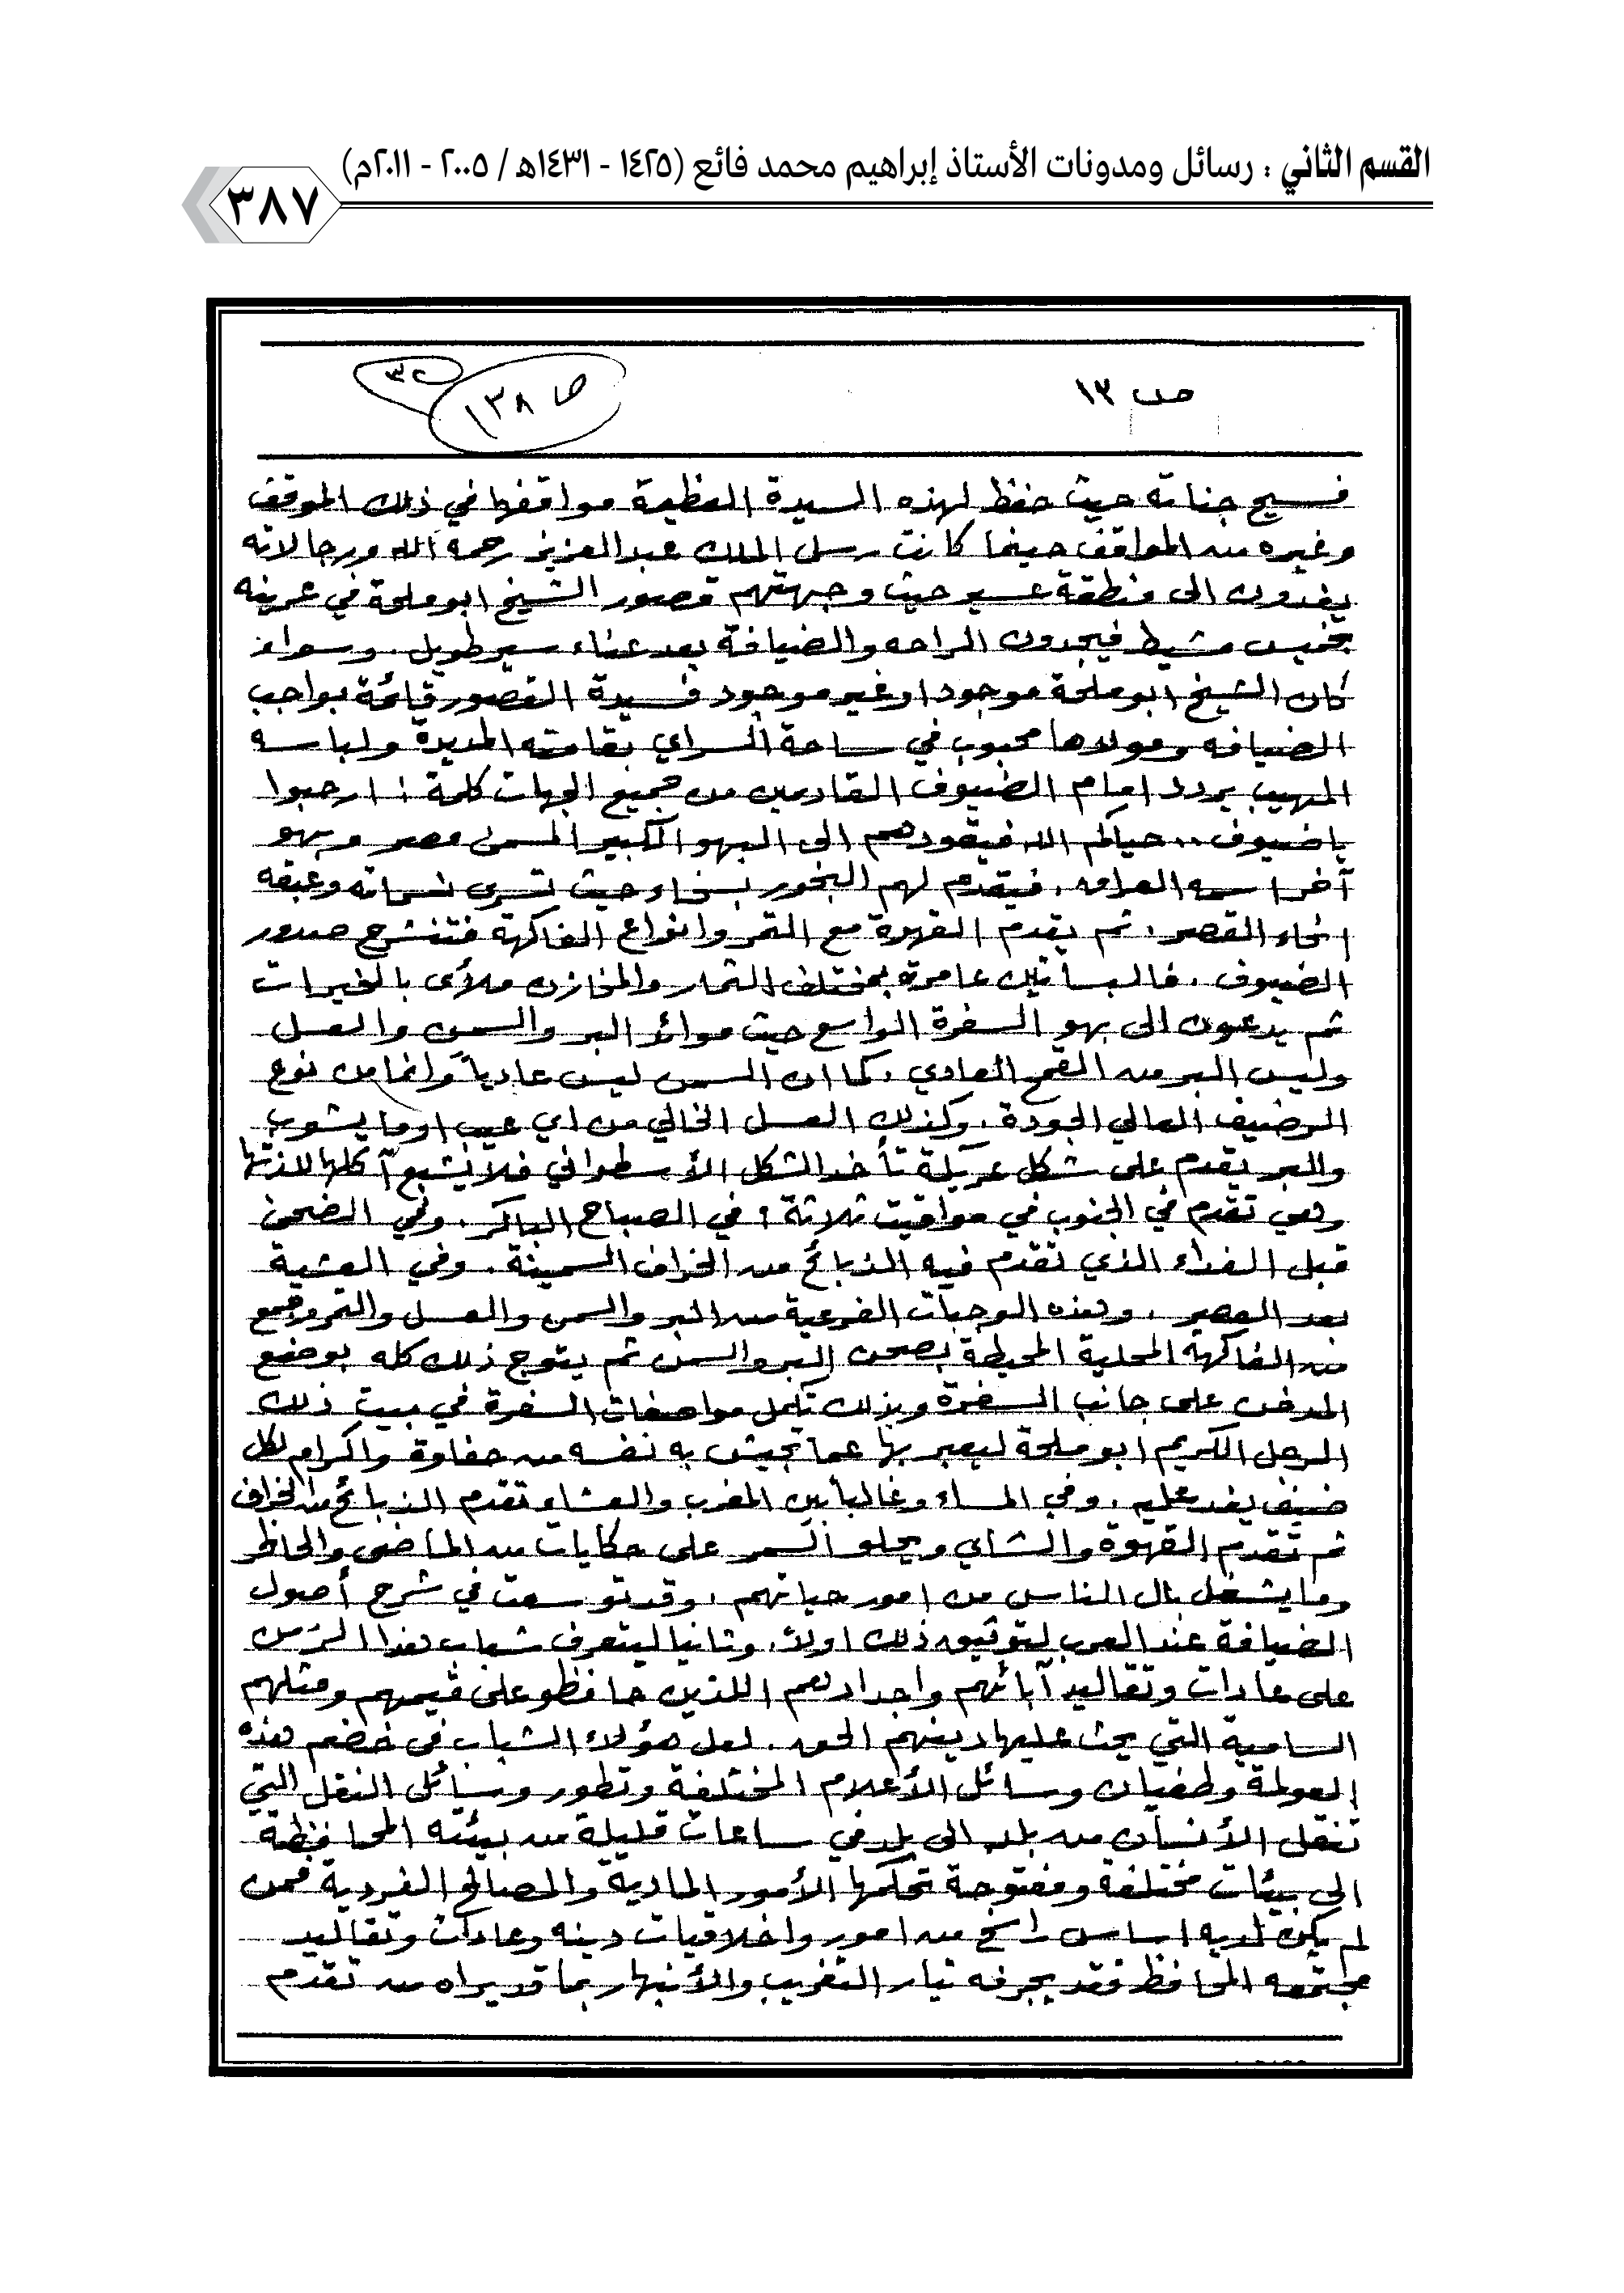 القسم الثاني : رسائل ومدونات الأستاذ إبراهيم محمد فائع (١٤٢٥ - ١٤٣١هـ / ٢٠٠٥ - ٢٠١١م)
٣٨٧
ص ١٣
ص ١٣٨
فسيح جناته حيث حفظ لهذه السيدة العظيمة مواقفها في ذلك الموقف
وغيره من المواقف حينما كانت رسل الملك عبدالعزيز رحمه الله ورجالاته
يفدون الى منطقة عسير حيث وجهتهم قصور الشيخ ابوملحة في عرينه
بخميس مشيط فيجدون الراحه والضيافة بعد عناء سير طويل . وسواء
كان الشيخ ابو ملحة موجود اوغير موجود فسيدة القصور قائمة بواجب
الضيافه ومولاها محبوب في ساحة السراي بقامته المديدة ولباسه
المهيب يردد امام الضيوف القادمين من جميع الجهات كلمة : ارحبوا
ياضيوف .. حياكم الله فيقودهم الى البهو الكبير المسمى مصر وبهو
آخر اسمه العراق . فيقدم لهم البخور بسخاء حيث تسري نسماته وعبقه
انحاء القصر . ثم يقدم القهوة مع التمر وانواع الفاكهة فتنشرح صدور
الضيوف . فالبساتين عامرة بمختلف الثمار والمخازن ملأى بالخيرات
ثم يدعون الى بهو السفرة الواسع حيث موائد البر والسمن والعسل
وليس البر من القمح العادي . كما ان السمن ليس عادياً وانما من نوع
الرضيف العالي الجودة . وكذلك العسل الخالي من اي عيب او ما يشوب
والبر يقدم على شكل عريكة تأخذ الشكل الأسطواني فلا يشبع آكلها للذتها
وهي تقدم في الجنوب في مواقيت ثلاثة : في الصباح الباكر . وفي الضحى
قبل الغداء الذي تقدم فيه الذبائح من الخراف السمينة . وفي العشية
بعد العصر . وهذه الوجبات الفرعية من البر والسمن والعسل والتمر وجمع
من الفاكهة المحلية المحيطة بصحن البر والسمن ثم يتوج ذلك كله بوضع
المدخن على جانب السفرة وبذلك تكمل مواصفات السفرة في بيت ذلك
الرجل الكريم ابو ملحة ليعبر بها عما تجيش به نفسه من حفاوة واكرام لكل
ضيف يفد عليه . وفي المساء وغالباً بين المغرب والعشاء تقدم الذبائح من الخراف
ثم تقدم القهوة والشاي ويحلو السمر على حكايات من الماضي والحاظر
وما يشغل بال الناس من امور حياتهم . وقد توسعت في شرح أصول
الضيافة عند العرب لتوثيق ذلك اولاً . وثانيا ليتعرف شباب هذا الزمن
على عادات وتقاليد آبائهم واجدادهم اللذين حافظو على قيمهم ومثلهم
السامية التي يحث عليها دينهم الحق . لعل هؤلاء الشباب في خضم هذه
العولمة وطغيان وسائل الأعلام المختلفة وتطور وسائل النقل التي
تنقل الأنسان من بلد الى بلد في ساعات قليلة من بيئته المحافظة
الى بيئات مختلفة ومفتوحة تحكمها الأمور المادية والمصالح الفردية فمن
لم يكن لديه اساس راسخ من امور واخلاقيات دينه وعادات وتقاليد
مجتمعه المحافظ فقد يجرفه تيار التغريب والأنبهار بما قد يراه من تقدم